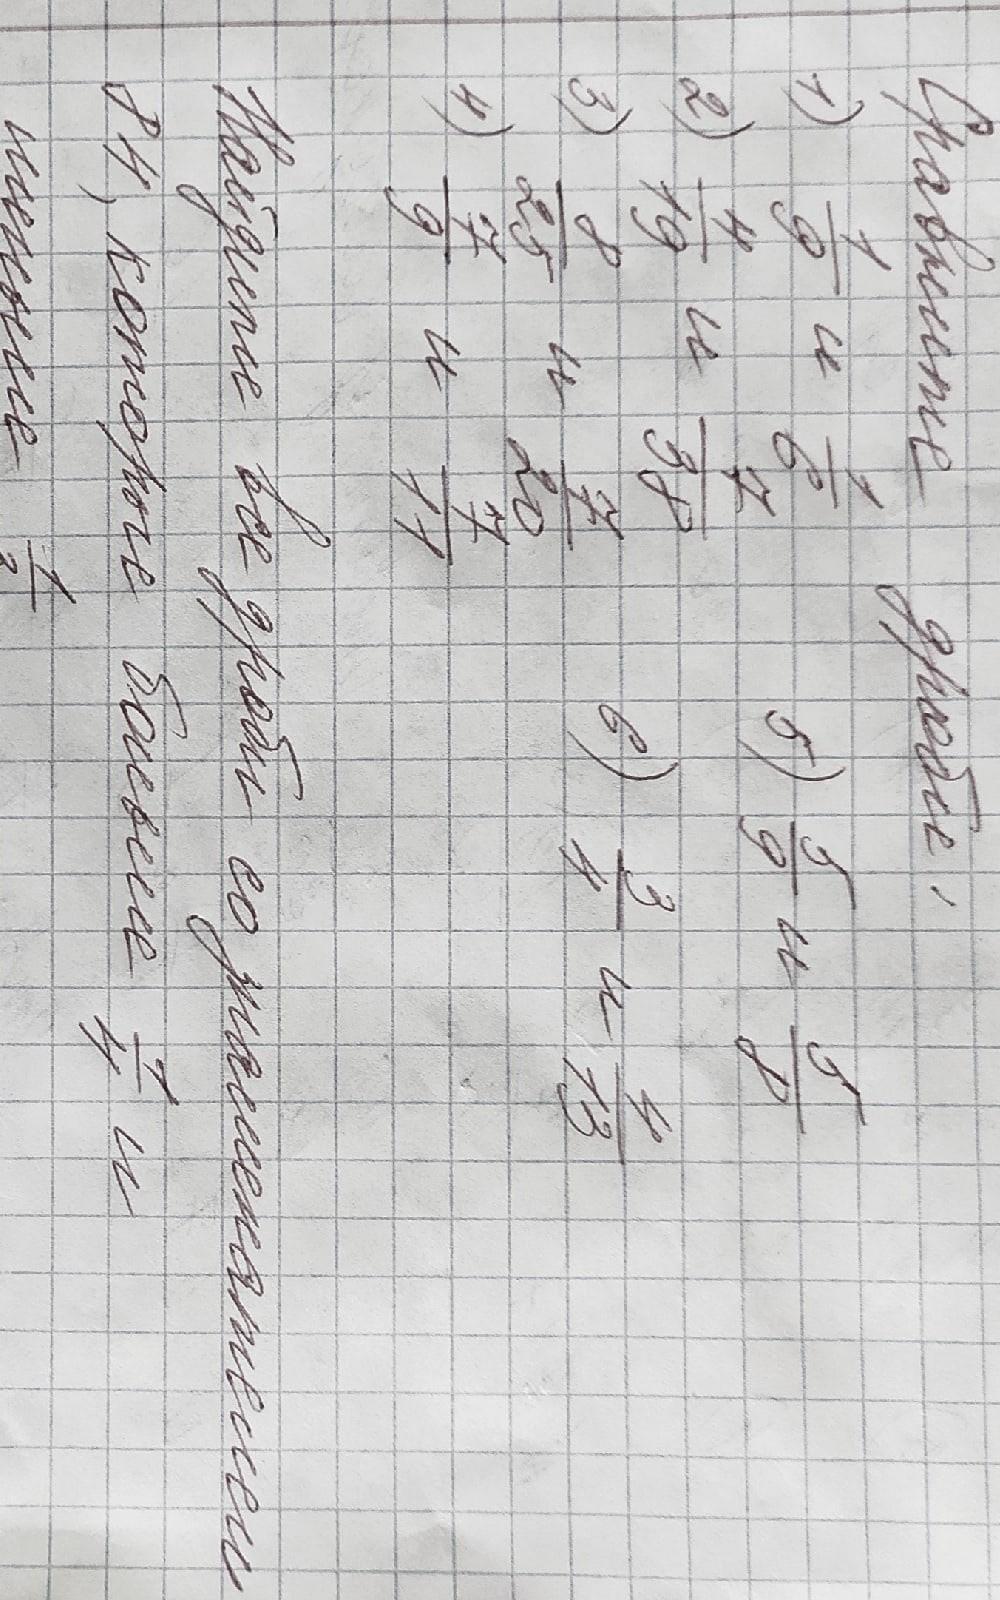 Сравните дроби:
1) 1/9 и 1/6 5) 5/9 и 5/8
2) 4/19 и 7/38
3) 8/25 и 7/20 6) 3/4 и 4/13
4) 7/9 и 7/11
Найдите все дроби со знаменателем
84, которые больше 1/4 и
меньше